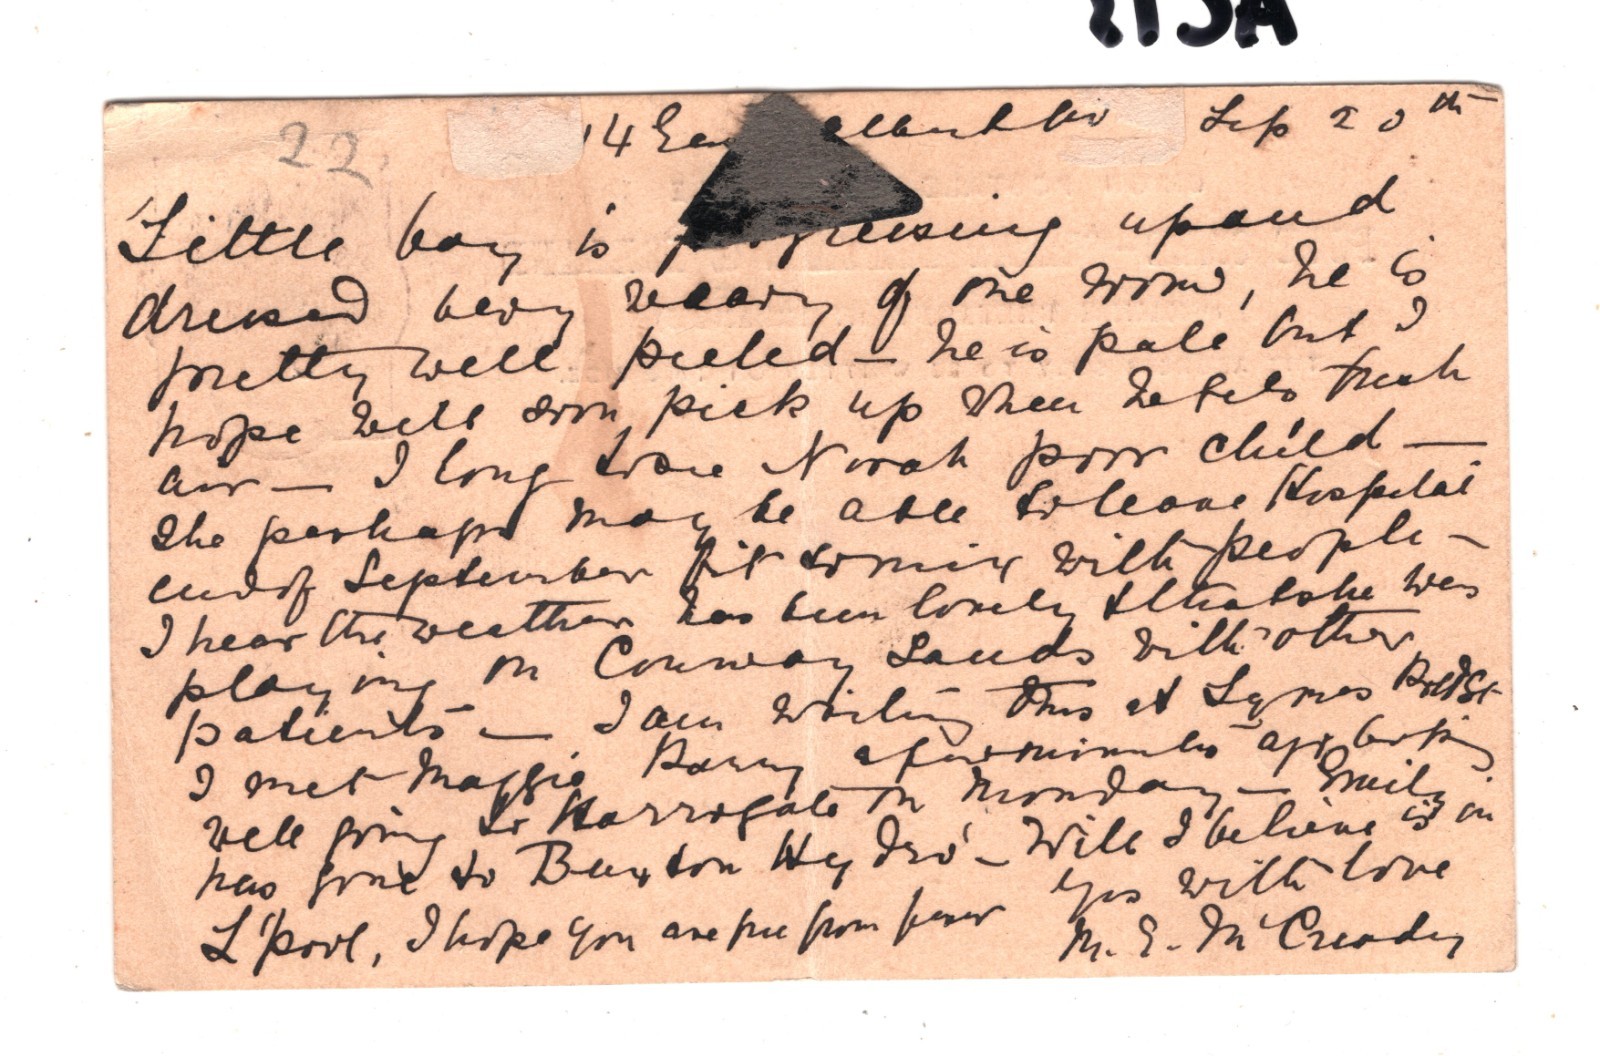 22
14 Sep 20th
Little boy is progressing up and
dressed very weary of one room, he is
pretty well peeled — he is pale but I
hope will soon pick up when he gets fresh
air — I long to see Norah poor child —
She perhaps may be able to leave Hospital
end of September fit to mix with people —
I hear the weather has been lovely & that she was
playing on Conway Sands with other
patients — I am writing this at Lymes Bold St
I met Maggie Barry a few minutes ago looking
well going to Harrogate on Monday — Emily
has gone to Buxton Hydro — Will I believe is in
L'pool, I hope you are free from fever Yrs with love
M. E. McCready